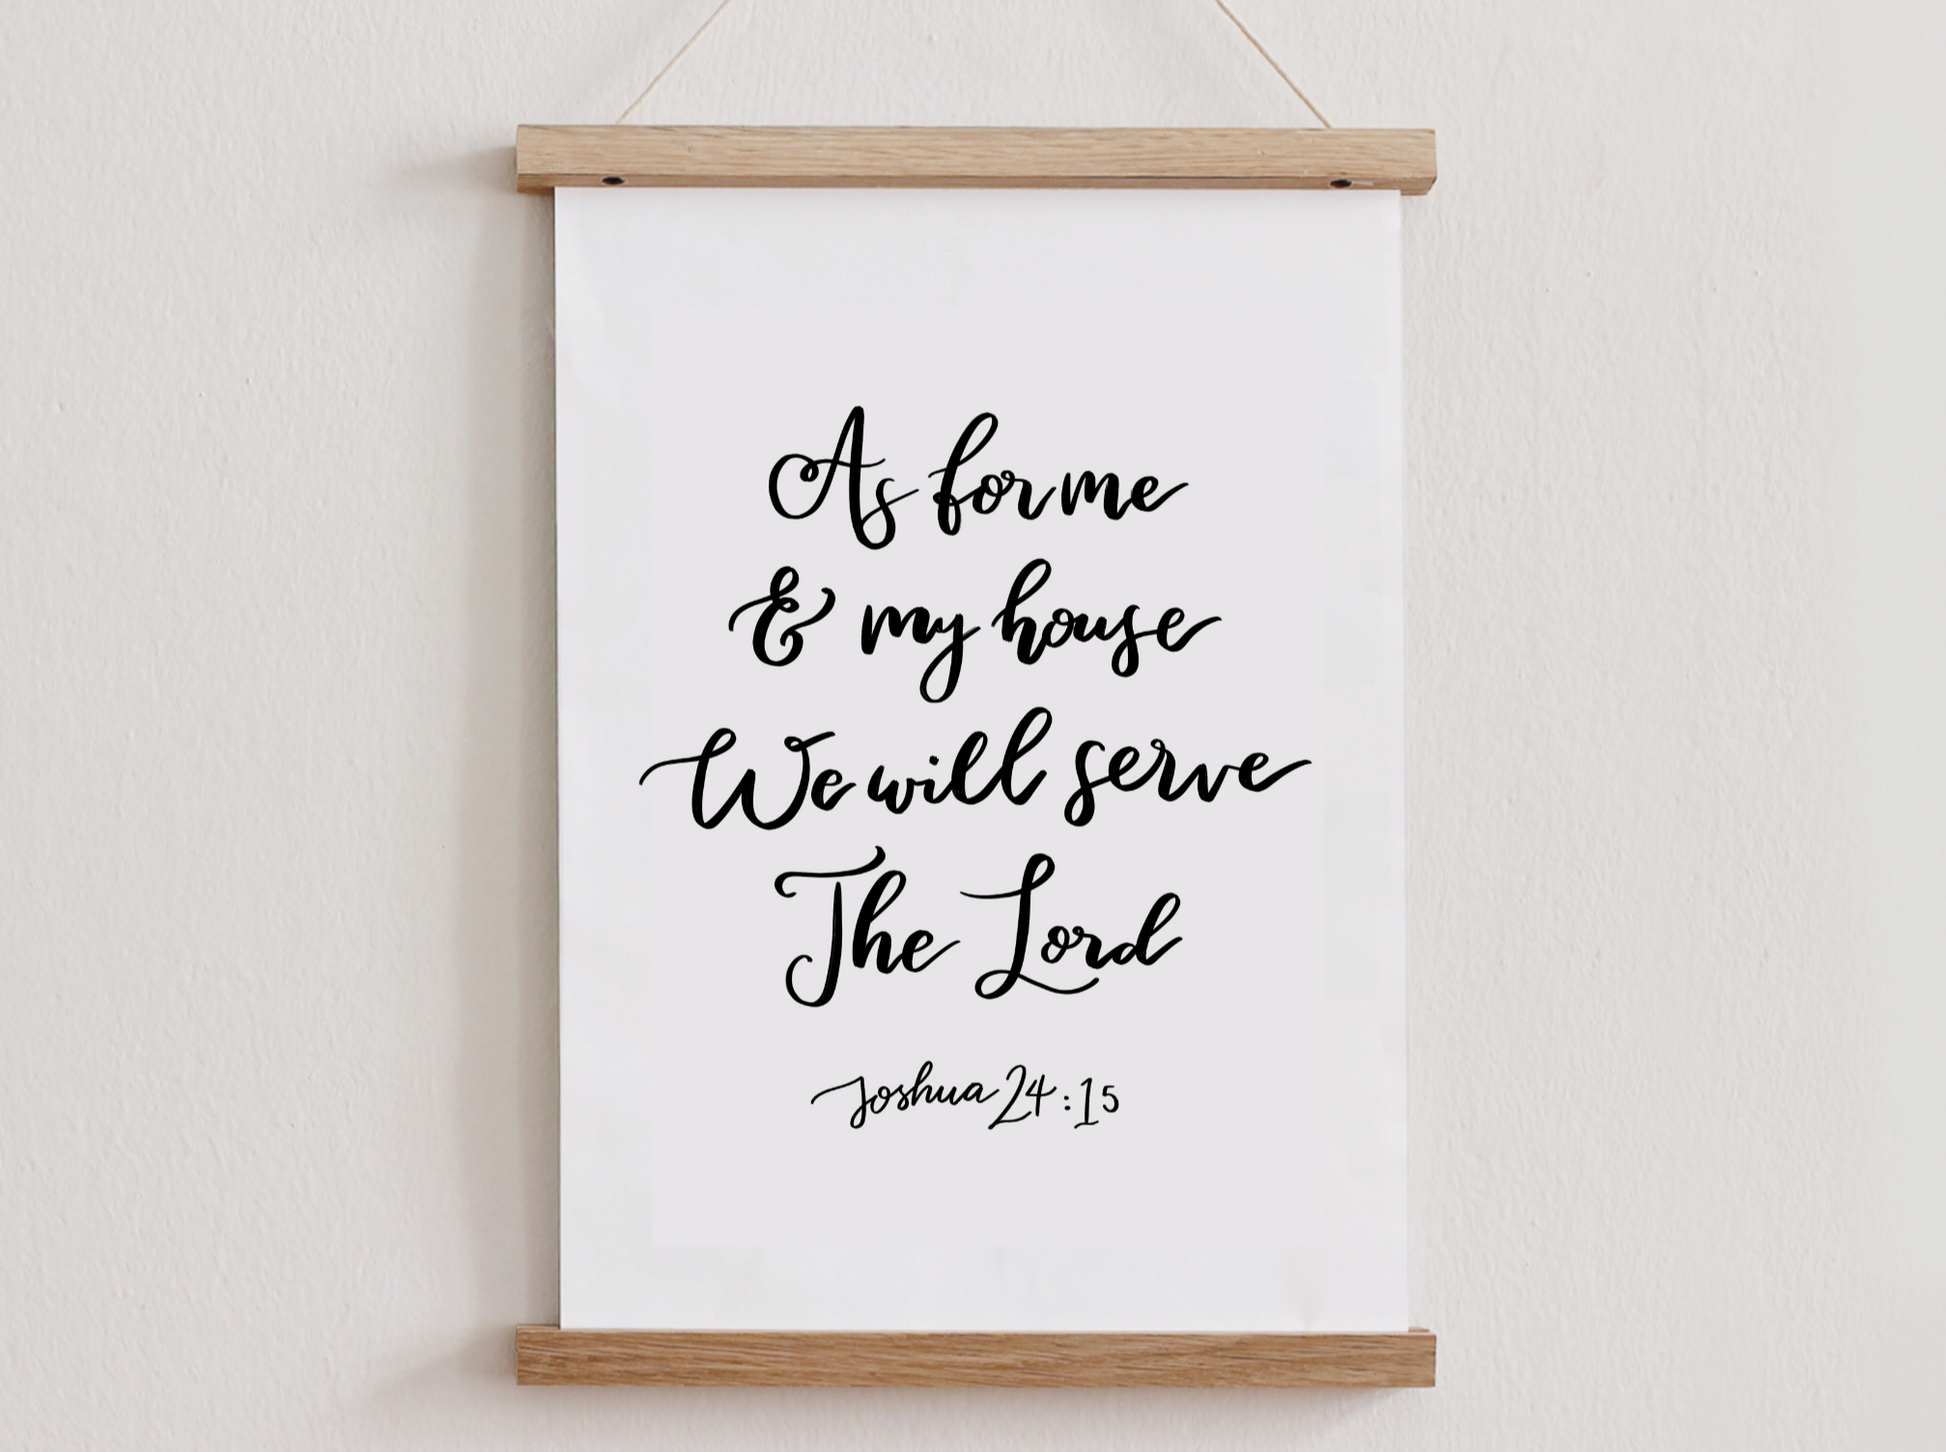 As for me
& my house
We will serve
The Lord
Joshua 24:15